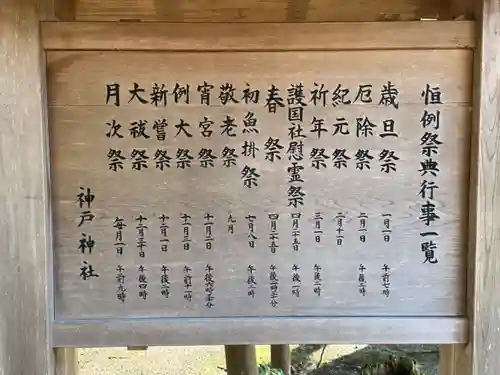 恒例祭典行事一覧
歳旦祭 一月一日 午前七時
厄除祭 二月一日 午後二時
紀元祭 二月十一日
祈年祭 三月一日 午後二時
護国社慰霊祭 四月二十五日 午後一時
春祭 四月二十五日 午後一時半分
初魚掛祭 七月八日 午後二時
敬老祭 九月
宵宮祭 十二月二日 午後六時半分
例大祭 十二月三日 午前十一時
新嘗祭 十二月一日 午後二時
大祓祭 十二月三十日 午後四時
月次祭 毎月一日 午前九時
神戸神社